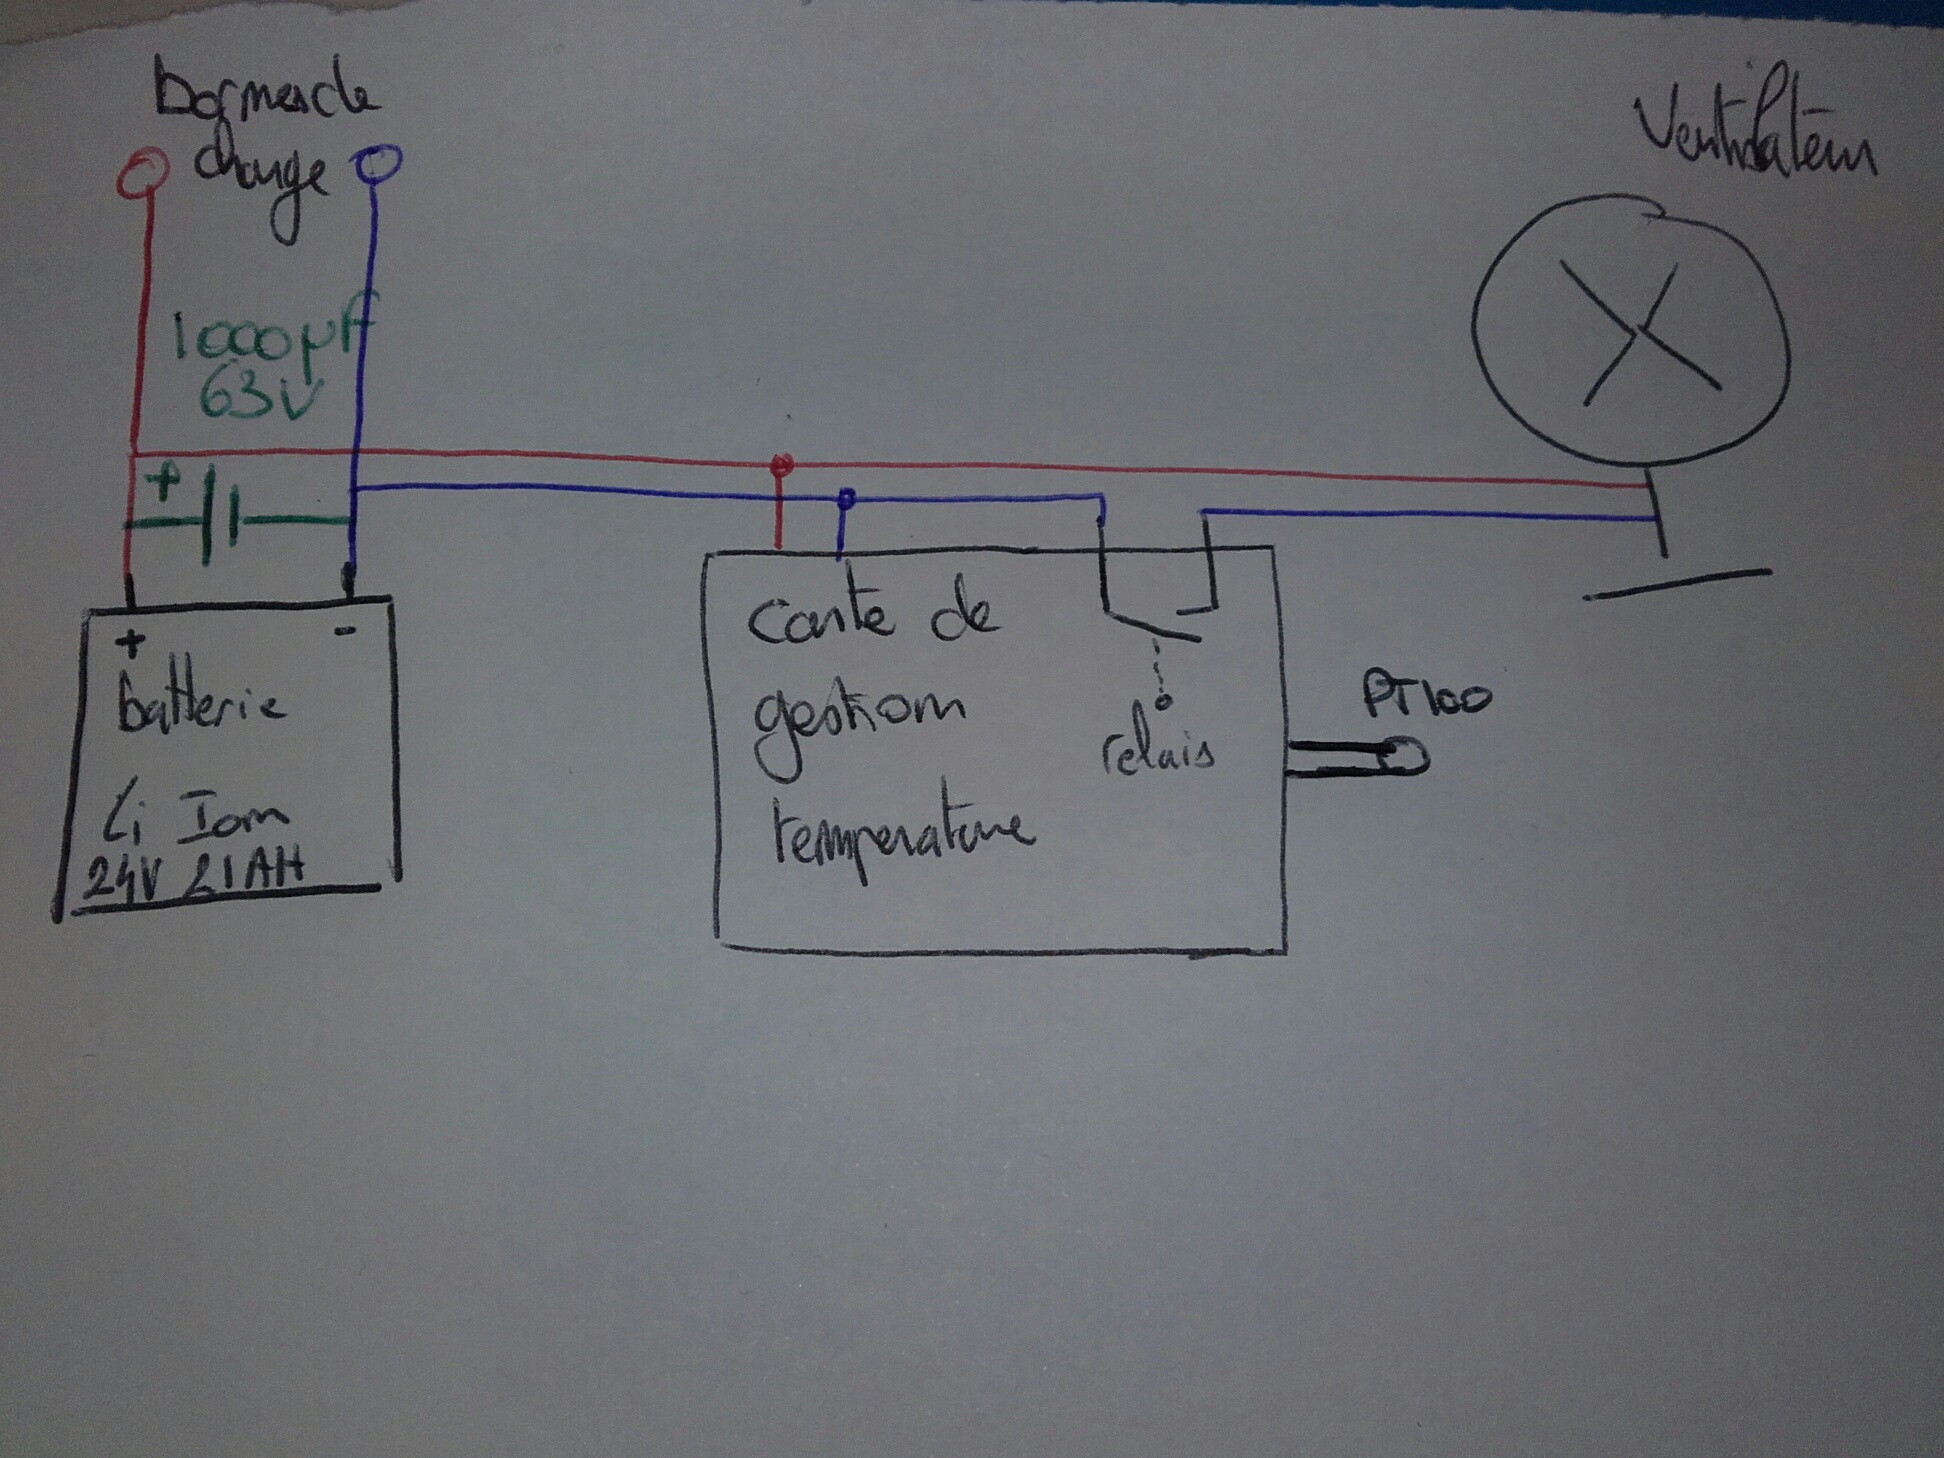 bornes de
charge
Ventilateur
1000µF
63V
+
+
-
batterie
Li Ion
24V 21AH
Carte de
gestion
température
relais
PT100